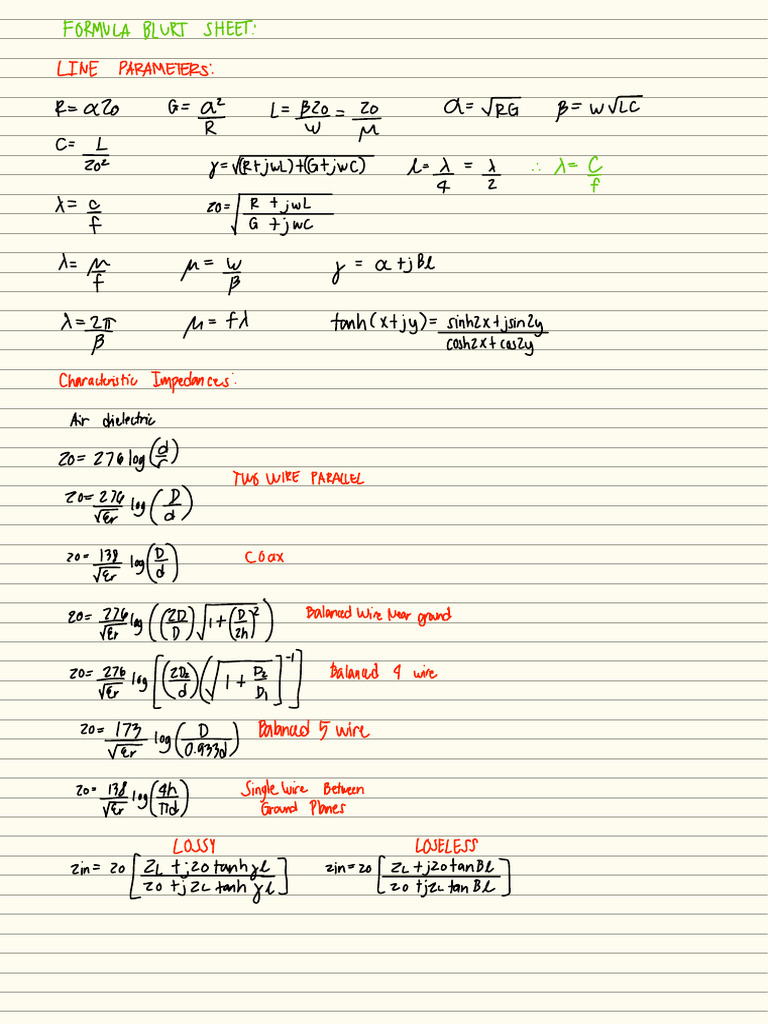 FORMULA BLURT SHEET:
LINE PARAMETERS:
R = αZ0   G = α²/R   L = βZ0/W = Z0/μ   α = √RG   β = W√LC
C = L/Z0²   γ = √(R+jwL)+(G+jwC)   l = λ/4 = λ/2   ∴ λ = C/f
λ = c/f   Z0 = √((R + jwL)/(G + jwC))
λ = μ/f   μ = W/β   γ = α + jBl
λ = 2π/β   μ = fλ   tanh(x+jy) = (sinh2x+jsin2y)/(cosh2x+cos2y)
Characteristic Impedances:
Air dielectric
Z0 = 276 log(d/r)
TWO WIRE PARALLEL
Z0 = 276/√Er log(D/d)
Z0 = 138/√Er log(D/d)   Coax
Z0 = 276/√Er log((2D/D)√1+(D/2h)²)   Balanced Wire Near ground
Z0 = 276/√Er log[(2D₂/d)(√1 + D₂/D₁]⁻¹]   Balanced 4 wire
Z0 = 173/√Er log(D/0.933d)   Balanced 5 wire
Z0 = 138/√Er log(4h/πd)   Single Wire Between
Ground Planes
LOSSY   LOSELESS
Zin = Z0 [(ZL + jZ0 tanh γl)/(Z0 + jZL tanh γl)]   Zin = Z0 [(ZL + jZ0 tan Bl)/(Z0 + jZL tan Bl)]